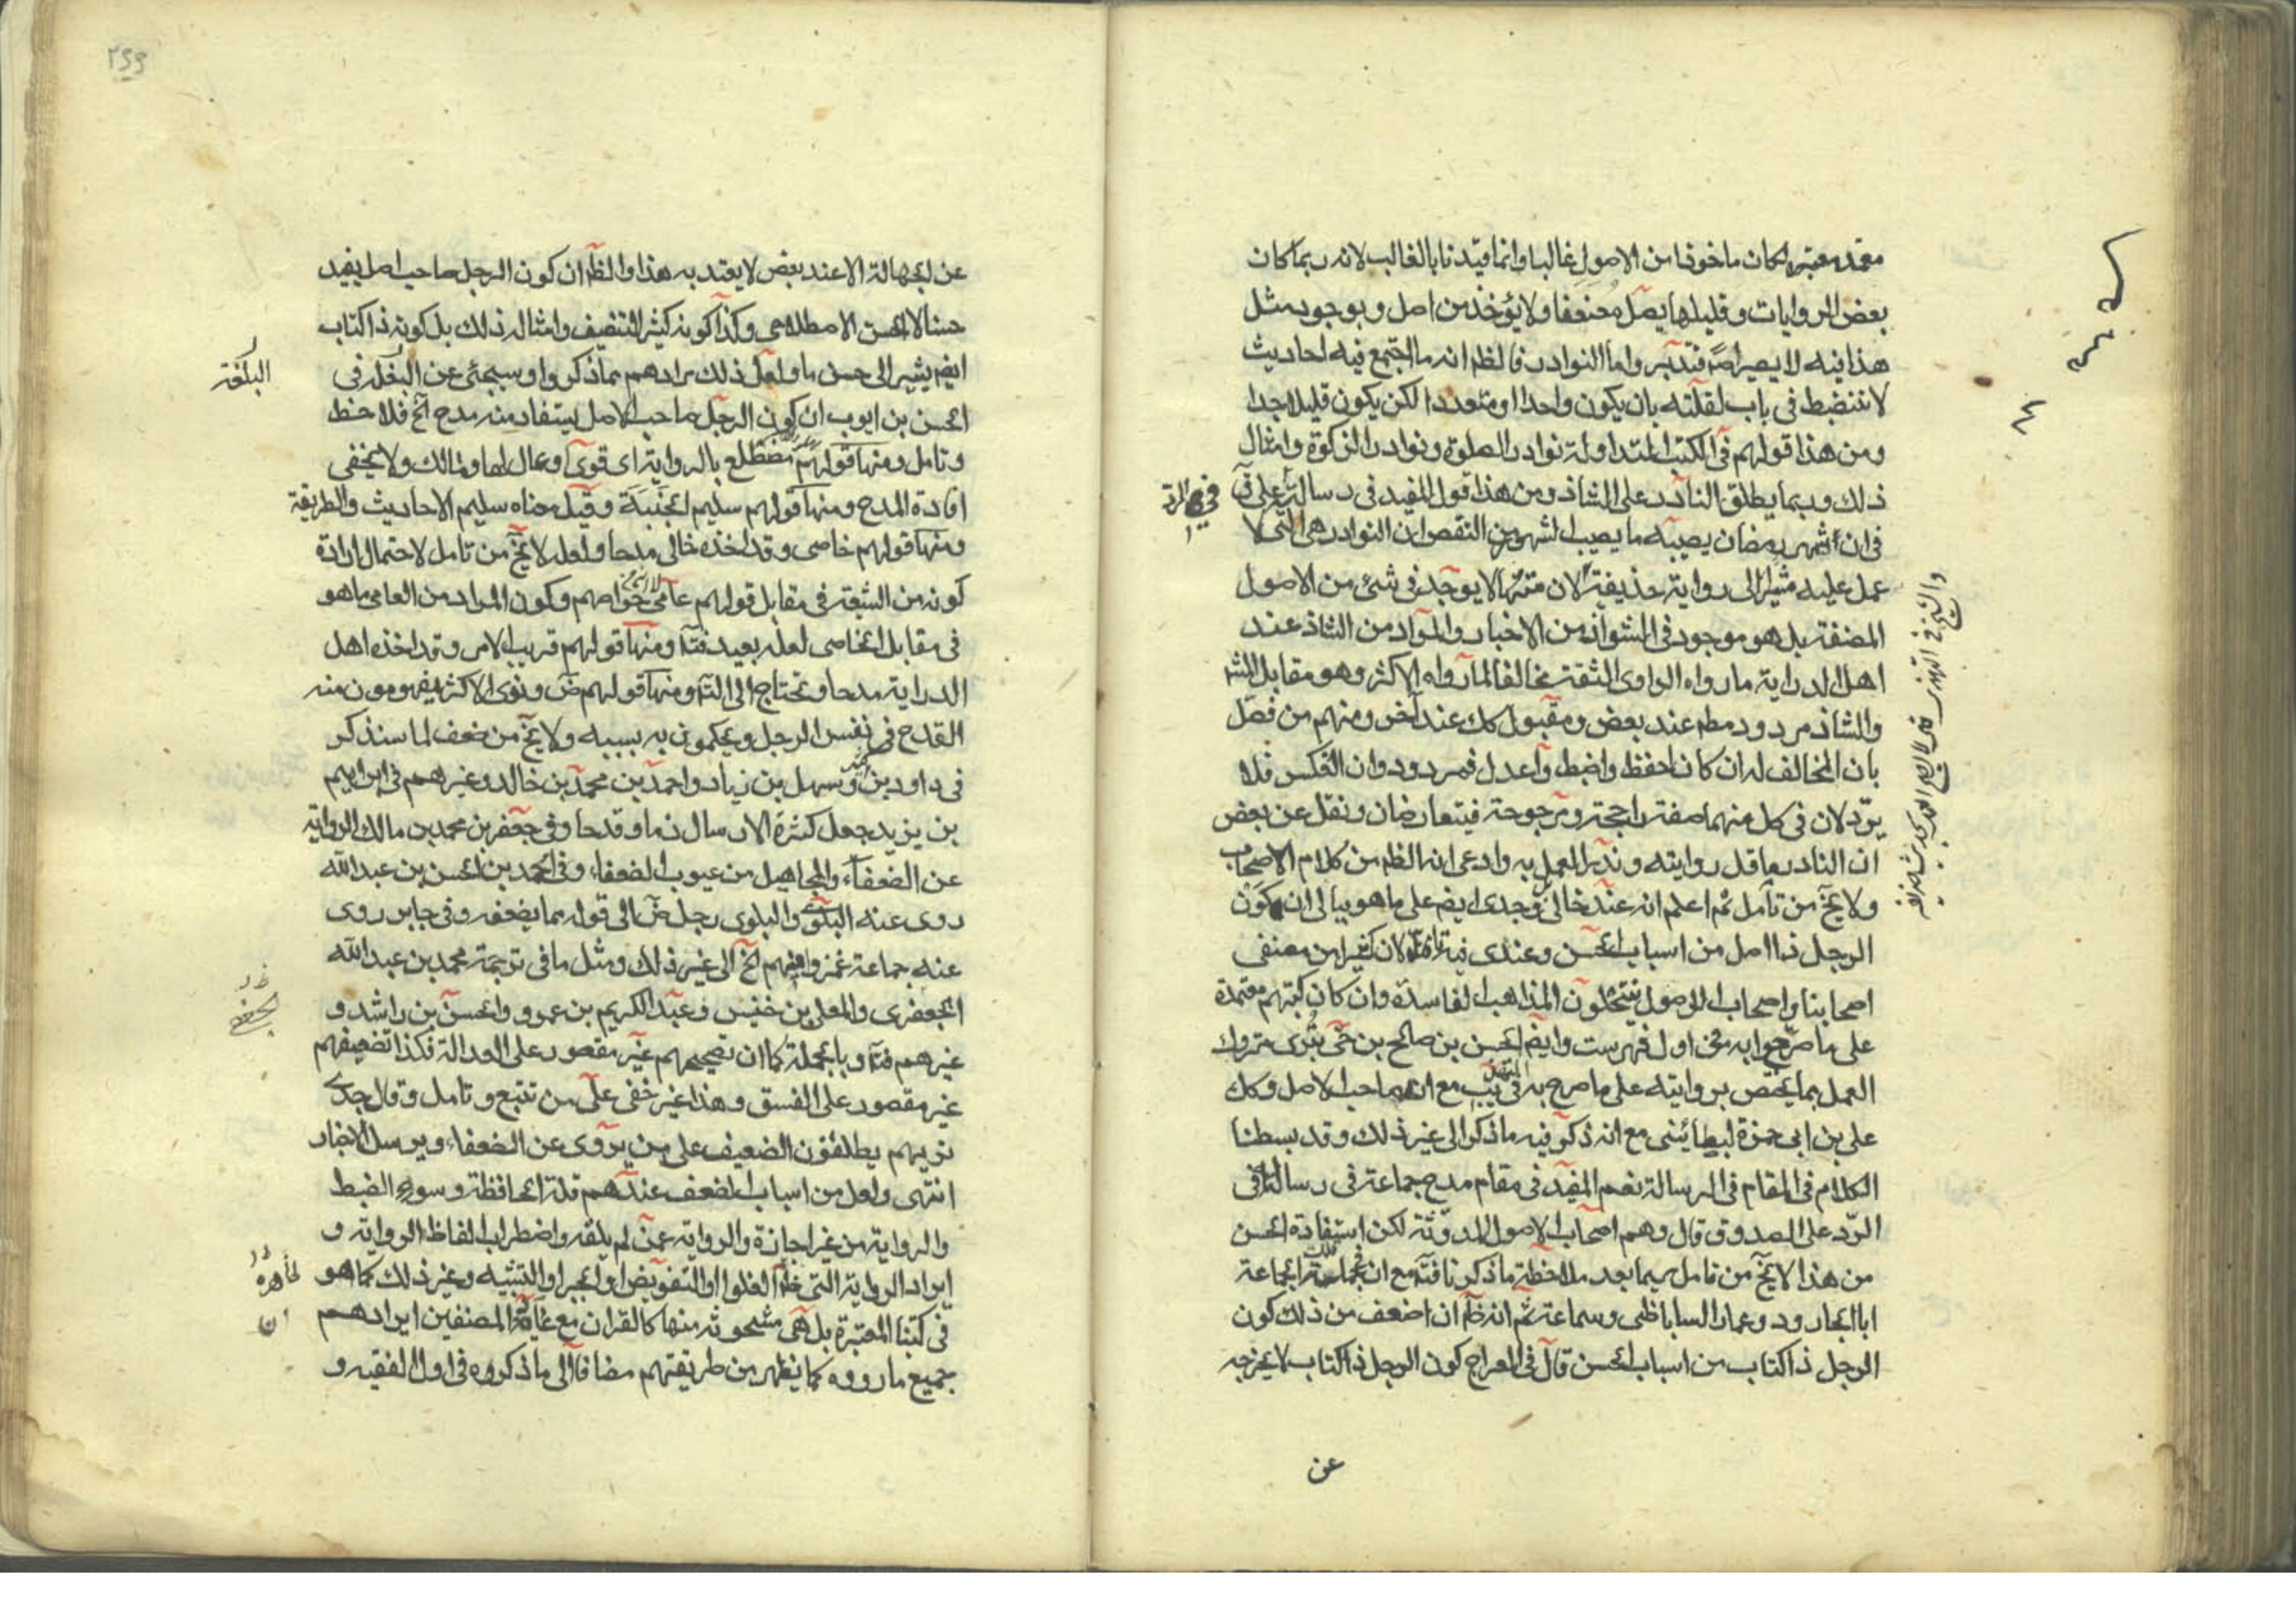 معتمد معتبر لكان ماخوذا من الاصول غالبا وانما قيدنا بالغالب لانه ربما كان
بعض الروايات وقليلها يصل معنعنا ولا يؤخذ من اصل وبوجود مثل
هذا فيه لا يصير اصلا فتدبر واما النوادر فالظ انه ما اجتمع فيه احاديث
لا تنضبط فى باب لقلته بان يكون واحدا او متعددا لكن يكون قليلا جدا
ومن هذا قولهم فى الكتب المتداولة نوادر الصلوة ونوادر الزكوة وامثال
ذلك وربما يطلق النادر على الشاذ ومن هذا قول المفيد فى رسالته
فى ان شهر رمضان يصيبه ما يصيب الشهور من النقص ان النوادر هى التى لا
عمل عليه مشيرا الى رواية حذيفة لان متنها لا يوجد فى شئ من الاصول
المصنفة بل هو موجود فى الشواذ من الاخبار والمراد من الشاذ عند
اهل الدراية ما رواه الراوى الثقة مخالفا لما رواه الاكثر وهو مقابل المش
والشاذ مردود مطم عند بعض ومقبول كك عند آخر ومنهم من فصل
بان المخالف له ان كان احفظ واضبط واعدل فمردود وان انعكس فلا
يرد لان فى كل منهما صفة راجحة ومرجوحة فيتعارضان ونقل عن بعض
ان النادر ما قل روايته وندر العمل به وادعى انه الظ من كلام الاصحاب
ولا يخ من تامل ثم اعلم انه عند خالى وجدى ايضم على ما هو ببالى ان كون
الرجل ذا اصل من اسباب الحسن وعندى فيه لان كثيرا من مصنفى
اصحابنا واصحاب الاصول ينتحلون المذاهب الفاسدة وان كان كتبهم معتمدة
على ما صرحوا به فى اول فهرست وايضم الحسن بن صالح بن حى بترى متروك
العمل بما يختص بروايته على ما صرح به فى يب مع انه صاحب الاصل وكك
على بن ابى حمزة البطائنى مع انه ذكر فيه ما ذكر الى غير ذلك وقد بسطنا
الكلام فى المقام فى الرسالة نعم المفيد فى مقام مدح جماعة فى رسالته فى
الرد على الصدوق قال وهم اصحاب الاصول المدونة لكن استفادة الحسن
من هذا لا يخ من تامل سيما بعد ملاحظة ما ذكرنا فتم مع ان فى جملة تلك الجماعة
ابا الجارود وعمار الساباطى وسماعة ثم انه ظ ان اضعف من ذلك كون
الرجل ذا كتاب من اسباب الحسن قال فى المعراج كون الرجل ذا كتاب لا يخرجه
عن
٢٩٩
عن الجهالة الا عند بعض لا يعتد به هذا والظ ان كون الرجل صاحب اصل يفيد
حسنا لا الحسن الاصطلاحى وكذا كونه كثير التصنيف وامثال ذلك بل كونه ذا كتاب
ايضم يشير الى حسن ما ولعل ذلك مرادهم مما ذكروا وسيجئ عن البلغة فى
البلغة
الحسن بن ايوب ان كون الرجل صاحب الاصل يستفاد منه مدح آخ فلاحظ
وتامل ومنها قولهم مضطلع بالرواية اى قوى وعال لها ومالك ولا يخفى
افادة المدح ومنها قولهم سليم الجنبة وقيل معناه سليم الاحاديث والطريقة
ومنها قولهم خاصى وقد اخذه خالى مدحا ولعله لا يخ من تامل لاحتمال ارادة
كونه من الشيعة فى مقابل قولهم عامى لا انه خواصهم وكون المراد من العامى ما هو
فى مقابل الخاصى لعله بعيد فتم ومنها قولهم قريب الامر وقد اخذه اهل
الدراية مدحا ويحتاج الى التم ومنها قولهم ض ونرى الاكثر يفهمون منه
القدح فى نفس الرجل ويحكمون به بسببه ولا يخ من ضعف لما سنذكر
فى داود بن كثير وسهل بن زياد واحمد بن محمد بن خالد وغيرهم فى ابراهيم
بن يزيد جعل كثرة الارسال ذما وقدحا وفى جعفر بن محمد بن مالك الرواية
عن الضعفاء والمجاهيل من عيوب الضعفاء وفى احمد بن الحسن بن عبد الله
روى عنه البلوى والبلوى رجل ض الى قوله مما يضعفه وفى جابر روى
عنه جماعة غمز فيهم الخ الى غير ذلك ومثل ما فى ترجمة محمد بن عبد الله
الجعفرى والمعلى بن خنيس وعبد الكريم بن عمرو والحسن بن راشد و
غيرهم فتم وبالجملة كما ان تصحيحهم غير مقصور على العدالة فكذا تضعيفهم
غير مقصور على الفسق وهذا غير خفى على من تتبع وتامل وقال جدى
نريهم يطلقون الضعيف على من يروى عن الضعفاء ويرسل الاخبار
انتهى ولعل من اسباب الضعف عندهم قلة الحافظة وسوء الضبط
والرواية من غير اجازة والرواية عمن لم يلقه واضطراب الفاظ الرواية و
ايراد الرواية التى ظ الغلو او التفويض او الجبر او التشبيه وغير ذلك كما هو
فى كتبنا المعتبرة بل هى مشحونة منها كالقران مع المصنفين ايرادهم
جميع ما رووه كما يظهر من طريقتهم مضافا الى ما ذكروه فى اول الفقيه و